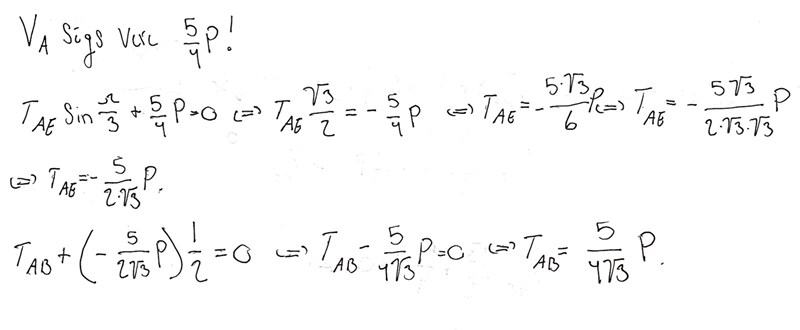 V_A sägs vara 5/4 P!
T_AE Sin π/3 + 5/4 P = 0 <=> T_AE √3/2 = - 5/4 P <=> T_AE = - 5·√3/6 P <=> T_AE = - 5√3/2·√3·√3 P
<=> T_AE = - 5/2·√3 P.
T_AB + (- 5/2√3 P) 1/2 = 0 <=> T_AB - 5/4√3 P = 0 <=> T_AB = 5/4√3 P.